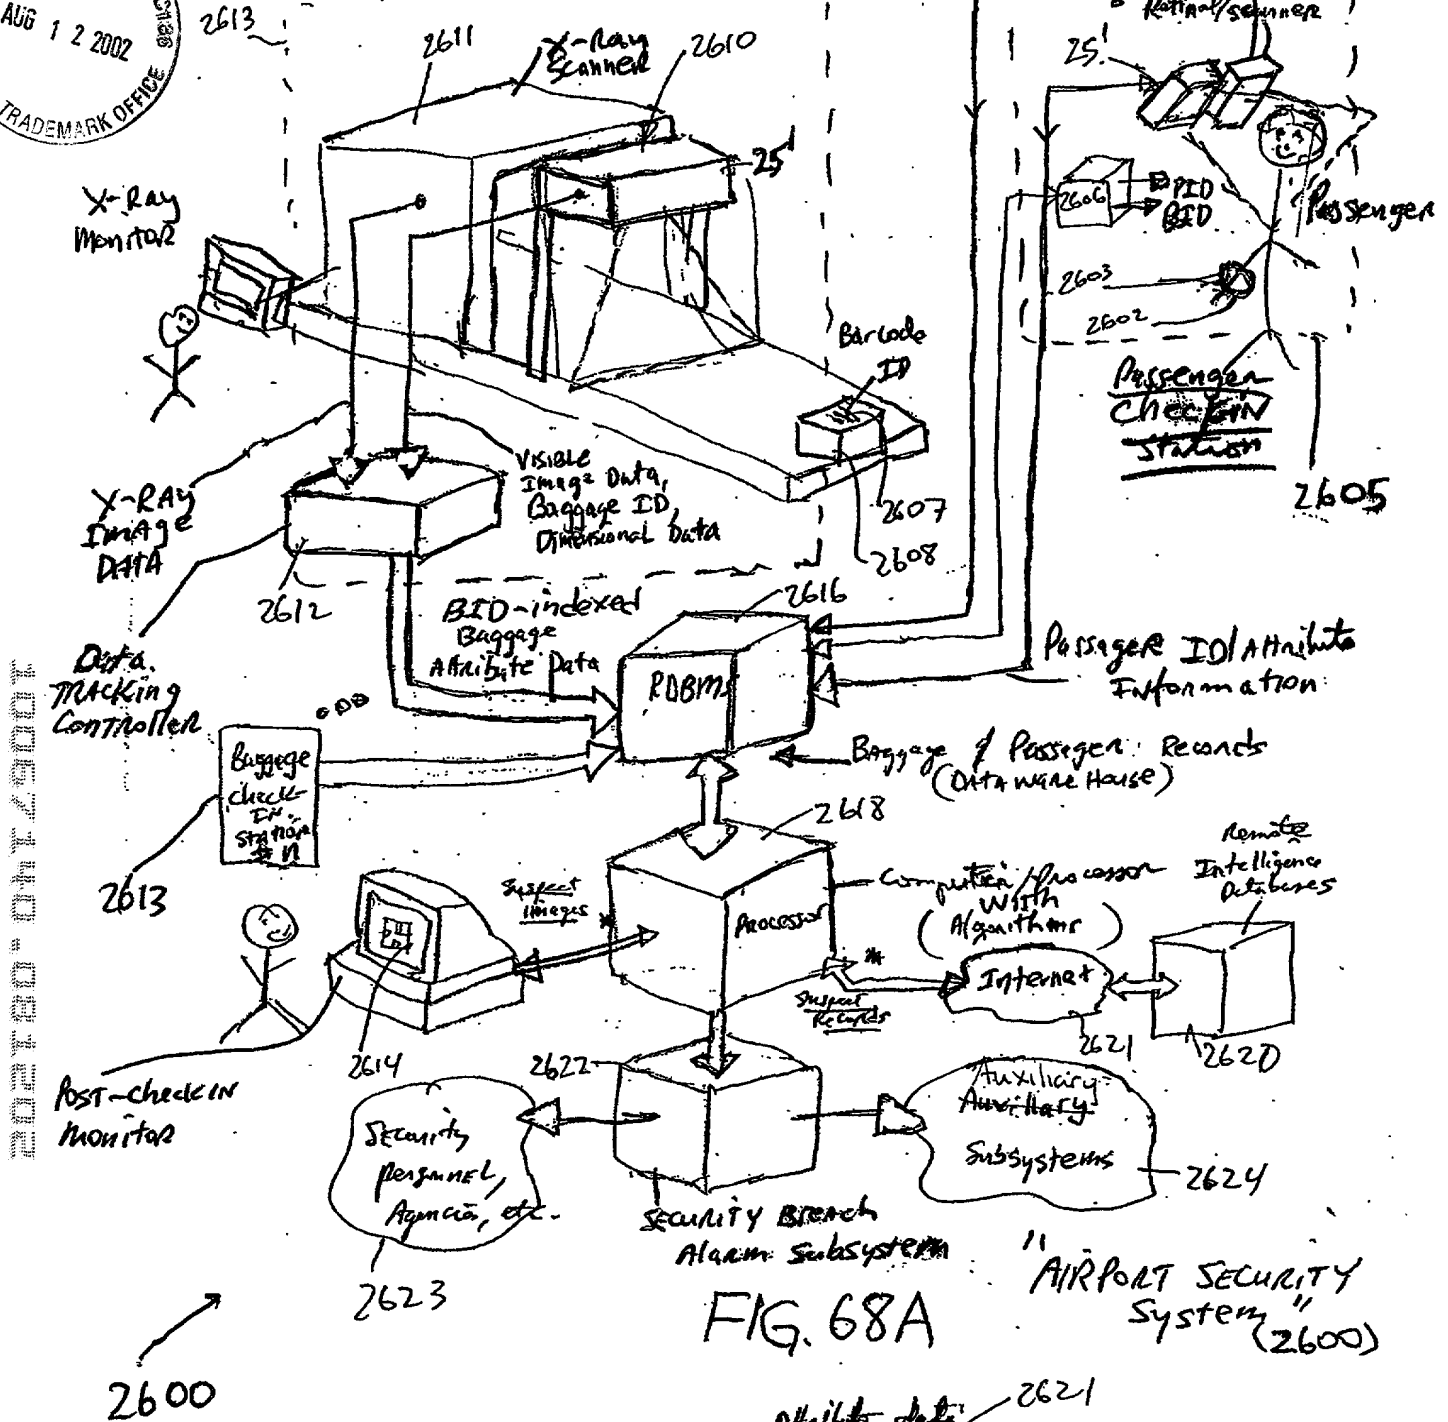 AUG 12 2002
TRADEMARK OFFICE
2613
2611
X-Ray
Scanner
2610
Retinal/scanner
25'
25'
X-Ray
Monitor
2606
PID
BID
Passenger
2603
2602
Barcode
ID
Passenger
CheckIN
Station
2605
X-RAY
Image
DATA
VISIBLE
Image Data,
Baggage ID,
Dimensional Data
2607
2608
2612
BID-indexed
Baggage
Attribute Data
2616
RDBMS
Passager ID/Attribute
Information
Data
TRACKING
Controller
Baggage
Check-
IN
Station
# n
2613
Baggage & Passager Records
(DATA WareHouse)
2618
Processor
Suspect
Images
*
Computer/Processor
With
(Algorithms)
*
Suspect
Records
Internet
2621
Remote
Intelligence
Databases
2620
2614
Post-CheckIN
Monitor
2622
Security
personnel,
Agencies, etc.
2623
Auxiliary
Auxillary
Subsystems
2624
SECURITY Breach
Alarm Subsystem
FIG. 68A
"AIRPORT SECURITY
System"
(2600)
2600
2621
10067140.081202